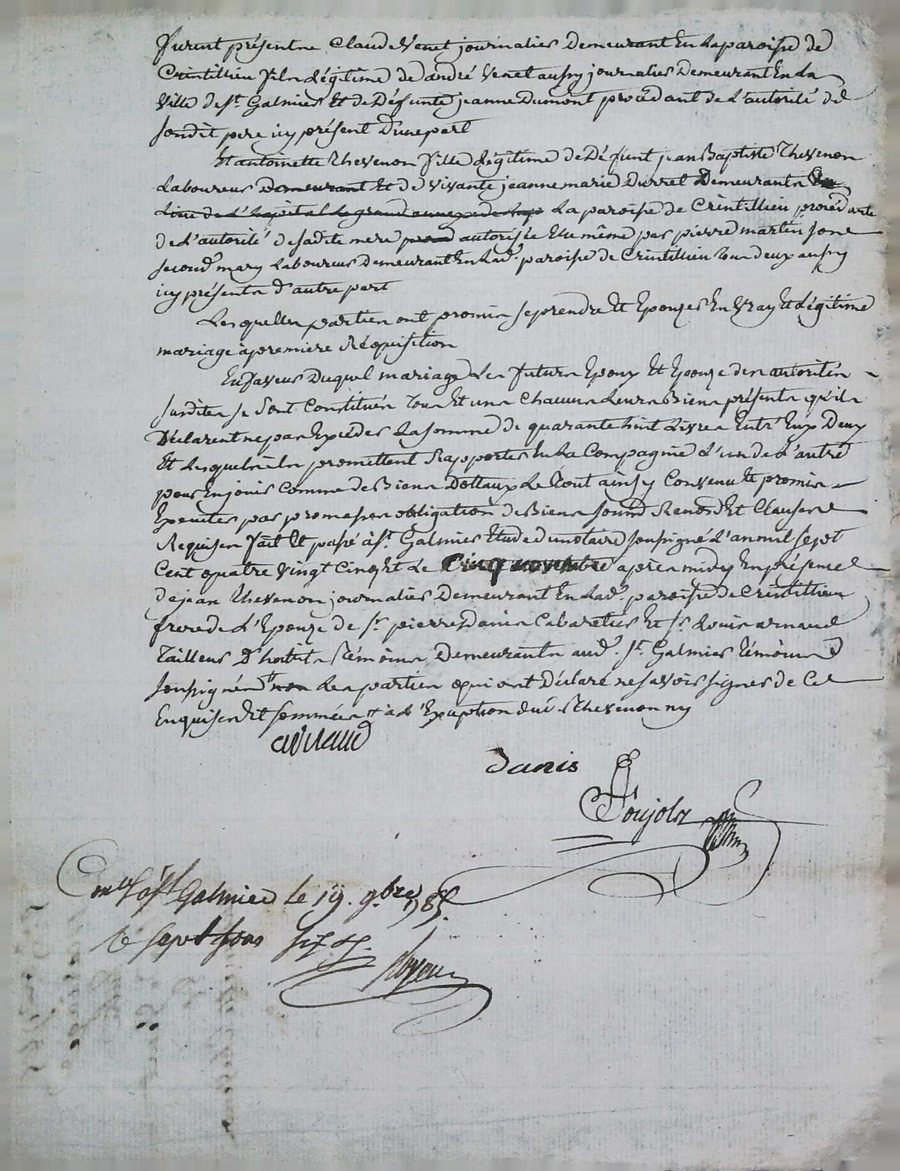 furent présents Claude Venet journalier Demeurant En la paroisse de
Crintillieu fils Légitime de andré Venet aussy journalier Demeurant En La
Ville de St. Galmier Et de Défunte jeanne Dumont procédant de L'autorité de
sondit pere icy présent D'une part
Et antoinette Thevenon fille Légitime de Défunt jean Baptiste Thevenon
Laboureur Demeurant Et de vivante jeanne marie Durret Demeurants
Lieu de L'hopital Le grand annexe de La paroisse de Crintillieu procédante
de L'autorité de sadite mere autorisée Elle même par pierre martin son
second mary Laboureur Demeurant En Lad. paroisse de Crintillieu Tous deux aussy
icy présents d'autre part
Lesquelles parties ont promis se prendre Et Epouzer En Vray Et Légitime
mariage a premiere Réquisition
En faveur Duquel mariage Les futurs Epoux Et Epouze des autorités
susdites se sont Constitués Tous Et uns Chacuns Leurs Biens présents qu'ils
Déclarent ne pas Excéder La somme de quarante huit Livres Entr'Eux Deux
Et Lesquels ils promettent Rapporter En La Compagnie L'un de L'autre
pour En jouir Comme de Biens Dottaux Le Tout ainsy Convenu Et promis
Executer par promesses obligation de Biens soumd. Renond. Et Clauses
Requises fait Et passé à St. Galmier Etude du notaire soussigné L'an mil sept
Cent quatre Vingt Cinq Et Le cinq novembre après midy En présence
de jean Thevenon journalier Demeurant En Lad. paroisse de Crintillieu
frere de L'Epouze de Sr. pierre Danis Cabaretier Et Sr. Louis arnaud
Tailleur D'habits Témoins Demeurants aud. St. Galmier Témoins
soussignés non Les parties qui ont Déclaré ne savoir signer de Ce
Enquises Et sommées à L'Exception dud. Thevenon ny
arnaud
Danis
Poujols
St Galmier Le 19. 9bre 1785.
sept sous